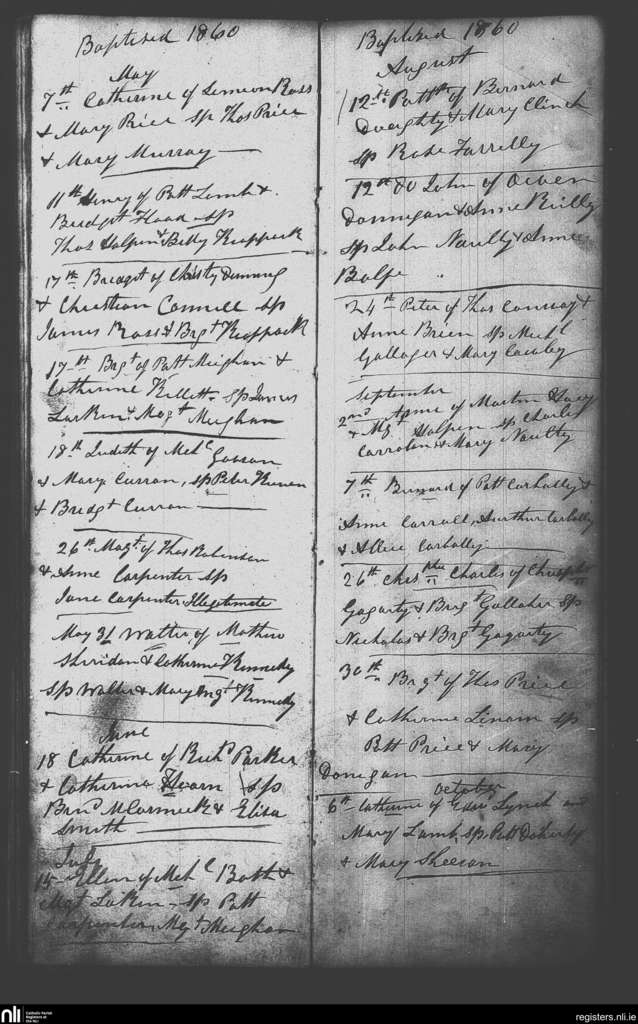 Baptised 1860
May
7th Catherine of Simeon Ross
& Mary Price Sp Thos Price
& Mary Murray
11th Henry of Patt Lamb &
Bridget Sp
Thos Halpin & Betty Keappock
17th Bridget of Christy Dunning
& Christian Connell Sp
James Ross & Brgt Keappock
17th Brgt of Patt Meighan &
Catherine Kellett Sp James
Larkin & Magt Meighan
18th Judith of Mchl
& Mary Curran, Sp Peter
& Bridgt Curran
26th Magt of Thos Robinson
& Anne Carpenter Sp
Jane Carpenter Illegitimate
May 31 Walter of Mathew
Sheridan & Catherine Kennedy
Sp Walter & Mary Kennedy
June
18 Catherine of Richd Parker
& Catherine Hearn Sp
Brnd McCormick & Eliza
Smith
July
15 Ellen of Mchl Bath &
Mgt Larkin Sp Patt
Carpenter, Mgt Meighan
Baptized 1860
August
12th Patt of Bernard
Doughty & Mary Clinch
Sp Rose Farrelly
12th do John of Owen
Donnegan & Anne Reilly
Sp John Naulty & Anne
Balfe
24th Peter of Thos Conroy &
Anne Brien Sp Michl
Gallager & Mary
September
2nd Anne of Martin
& Mgt Halpen Sp Charles
Carrolin & Mary Naulty
7th Bernard of Patt Carbally &
Anne Carroll, Aurthur Carbally
& Allice Carbally
26th Charles of
Gogarty & Brigt Gallaher Sp
Nicholas & Brgt Gogarty
30th Brgt of Thos Price
& Catherine Sp
Patt Price & Mary
Donegan
October
6th Catherine of Edwd Lynch and
Mary Lamb, Sp Patt Doherty
& Mary Sheeran
nli
Catholic Parish
Registers at
the NLI
registers.nli.ie